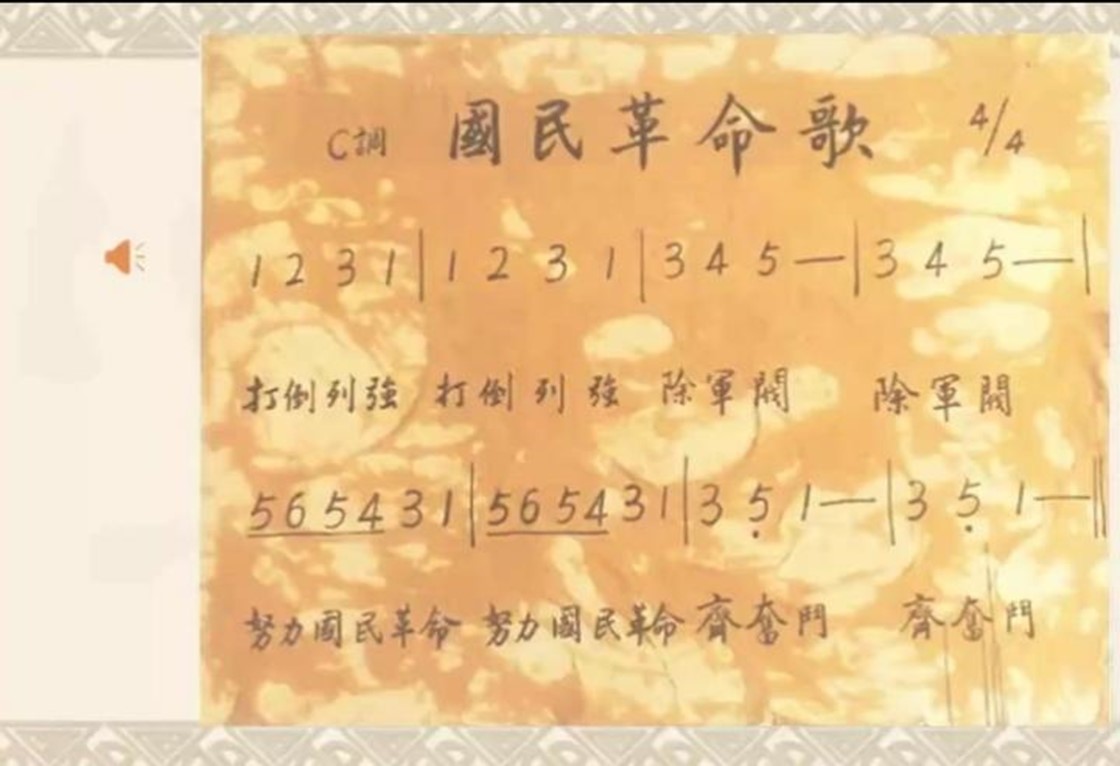 C調 國民革命歌 4/4
1 2 3 1 | 1 2 3 1 | 3 4 5 — | 3 4 5 — |
打倒列強 打倒列強 除軍閥 除軍閥
5 6 5 4 3 1 | 5 6 5 4 3 1 | 3 5 1 — | 3 5 1 — ‖
努力國民革命 努力國民革命 齊奮鬥 齊奮鬥